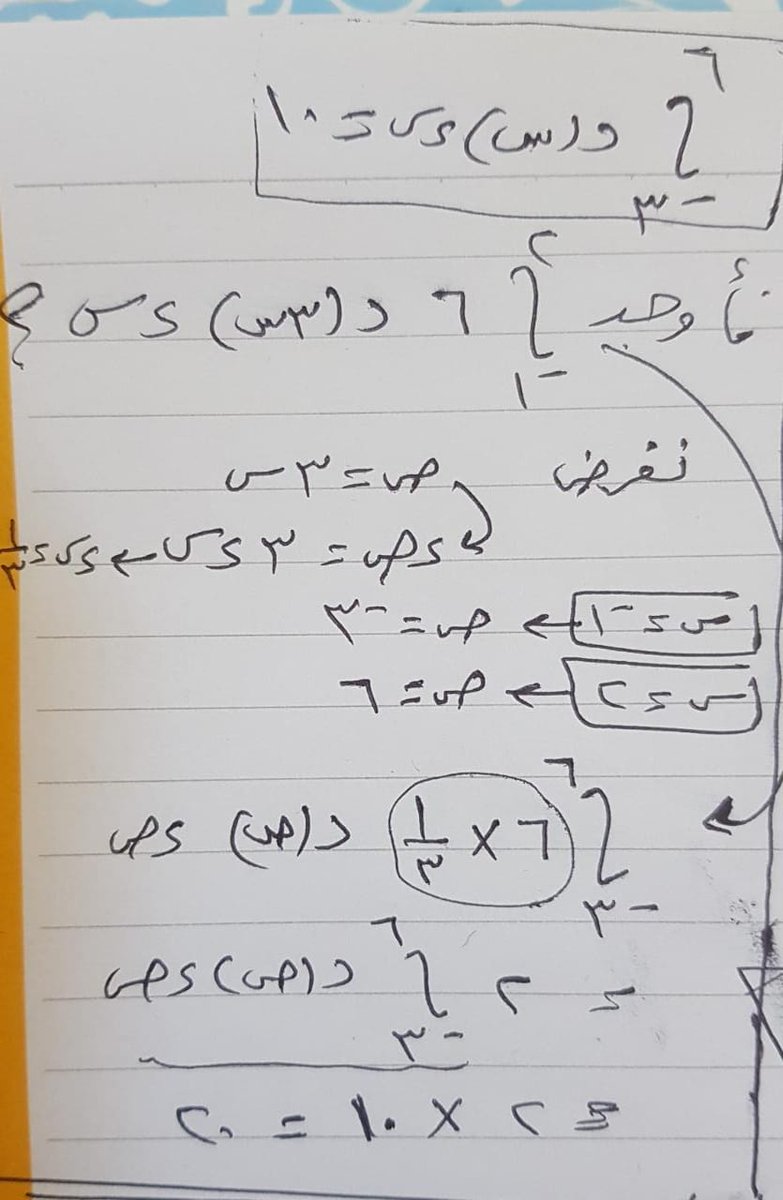 ∫_{-٣}^{٦} د(س) ءس = ١٠
فأوجد ∫_{-١}^{٢} ٦ د(٣س) ءس ؟
نفرض ص = ٣س
ءص = ٣ ءس ← ءس = ١/٣
س = -١ ← ص = -٣
س = ٢ ← ص = ٦
∫_{-٣}^{٦} ٦ × ١/٣ د(ص) ءص
= ٢ ∫_{-٣}^{٦} د(ص) ءص
= ٢ × ١٠ = ٢٠